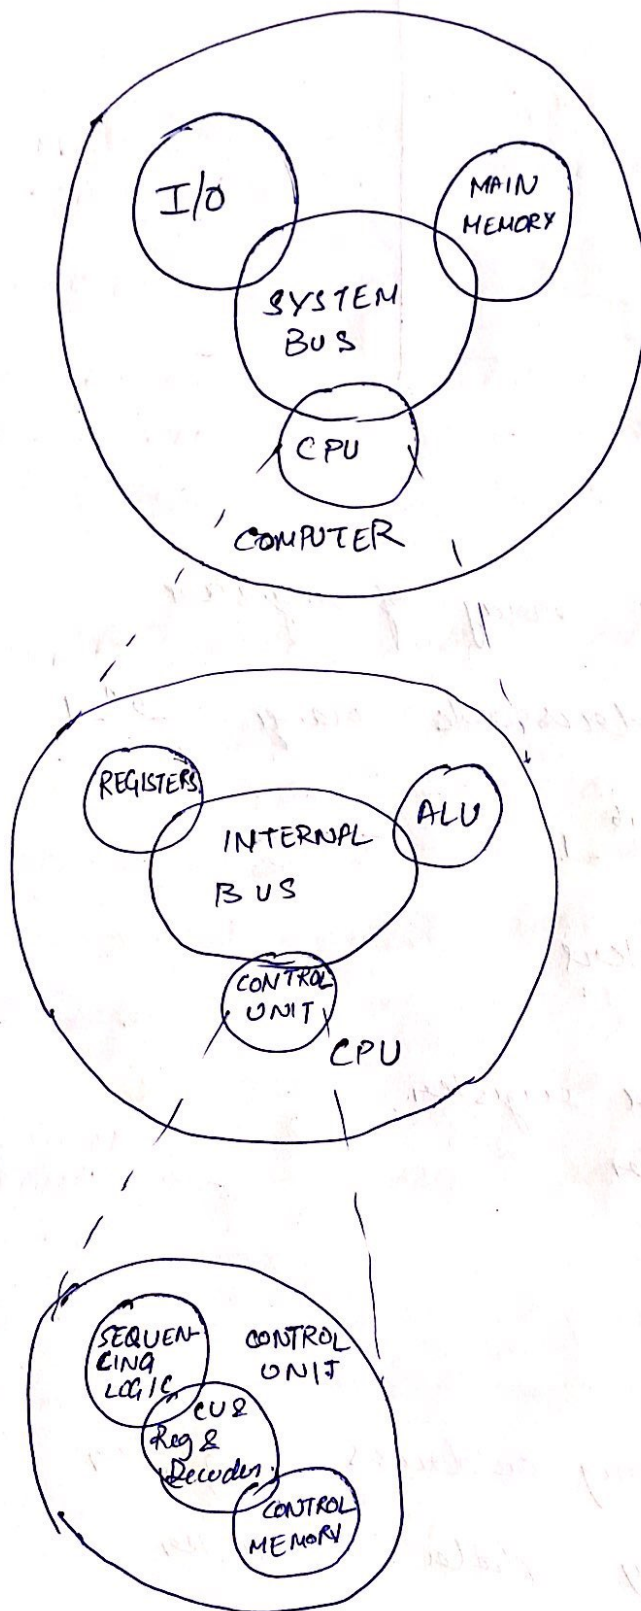 I/O
MAIN
MEMORY
SYSTEM
BUS
CPU
COMPUTER
REGISTERS
ALU
INTERNAL
BUS
CONTROL
UNIT
CPU
SEQUEN-
CING
LOGIC
CONTROL
UNIT
CU &
Reg &
Decoder.
CONTROL
MEMORY